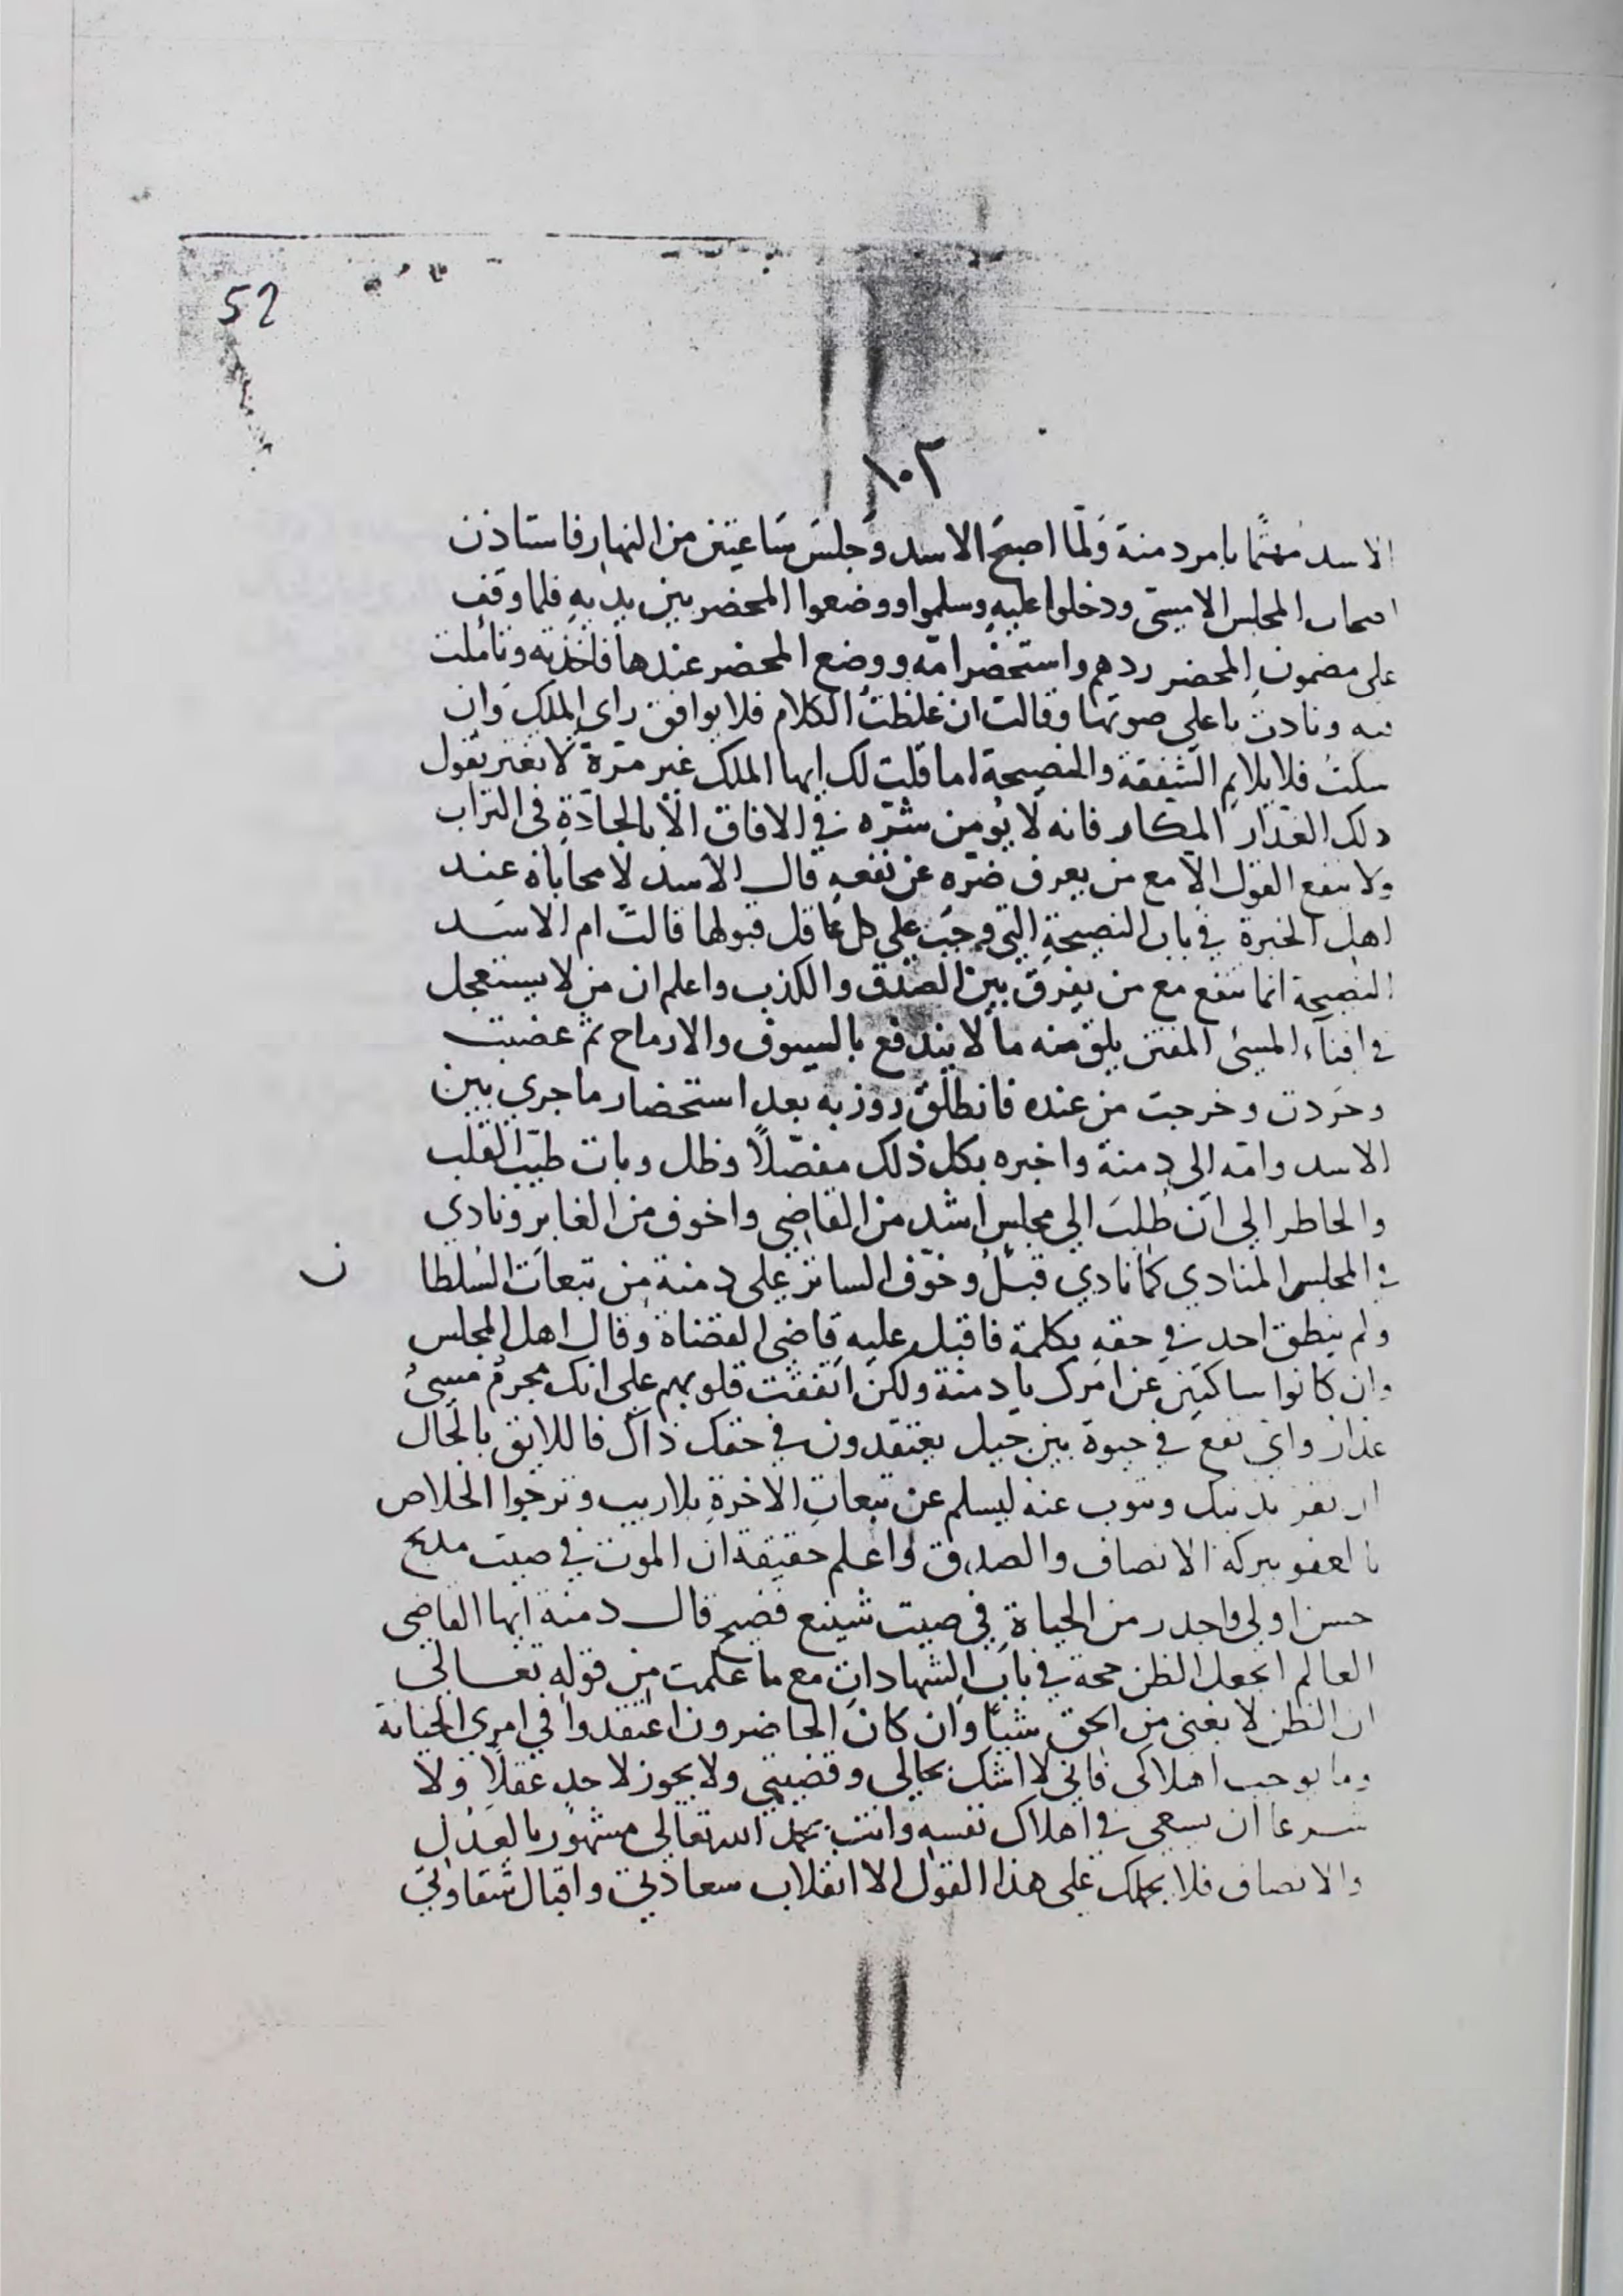 52
١٠٢
الاسد مهتمًا بامر دمنة ولمّا اصبح الاسد وجلسَ سَاعتين من النهار فاستاذن
اصحاب المجلس الامسىّ ودخلوا عليه وسلموا ووضعوا المحضر بين يديهِ فلما وقف
على مضمون المحضر ردهم واستحضر امّه ووضع المحضر عندها فاخذته وتأملت
فيه ونادت باعلى صوتها وقالت ان غلظتُ الكلام فلا يوافق راى الملك وان
سكتُ فلا يلايم الشفقة والنصيحة اما قلت لك ايها الملك غير مَرّة لا تغتر بقول
ذلك الغدّار المكار فانه لا يؤمن شرّه في الافاق الّا بالجادّة فى التراب
ولا ينفع القول الّا مع من يعرف ضرّه عن نفعهِ قال الاسد لا محاباه عند
اهل الخبرة في باب النصيحةِ التي وجبَت علي كل عاقل قبولها قالت ام الاسد
النصيحة انما تنفع مع من يفرق بين الصدق والكذب واعلم ان من لا يستعجل
في افناء المسئ المفتن يلق منه ما لا يندفع بالسيوف والارماح ثم غضبت
وحَردت وخرجت من عنده فانطلق روزبه بعد استحضار ما جري بين
الاسد وامّه الى دمنة واخبره بكل ذلك مفصّلًا وظل وبات طيّب القلب
والخاطر الي ان طُلبَ الي مجلس اشد من القاضي واخوف من الغابر ونادي
في المجلس المنادي كما نادي قبلُ وخوّف الساتر على دمنة من تبعات السُلطا
ن
ولم ينطق احد في حقهِ بكلمة فاقبل عليهِ قاضى القضاة وقال اهل المجلس
وان كانوا ساكتين عن امرك يا دمنة ولكن اتفقت قلوبهم على انك مجرمٌ مسئٌ
غدار واى نفع في حيوة بين جيل يعتقدون في حقك ذاك فاللايق بالحال
ان تقر بذنبك وتتوب عنه ليسلم عن تبعات الاخرةِ بلا ريب وترجوا الخلاص
بالعفو ببركة الانصاف والصدق واعلم حقيقة ان الموت في صيت مليح
حسن اولى واجدر من الحياة في صيت شينع فضيح قال دمنه ايها القاضى
العالم اتجعل الظن حجة في باب الشهادات مع ما علمت من قوله تعالي
ان الظن لا يغنى من الحق شيئًا وان كان الحاضرون اعتقدوا في امري الخيانة
وما يوجب اهلاكى فانى لا اشك بحالى وقضيتي ولا يجوز لاحد عقلًا ولا
شرعا ان يسعى في اهلاك نفسه وانت بحمد الله تعالى مشهور بالعدل
والانصاف فلا يحملك على هذا القول الا انقلاب سعادتي واقبال شقاوتي